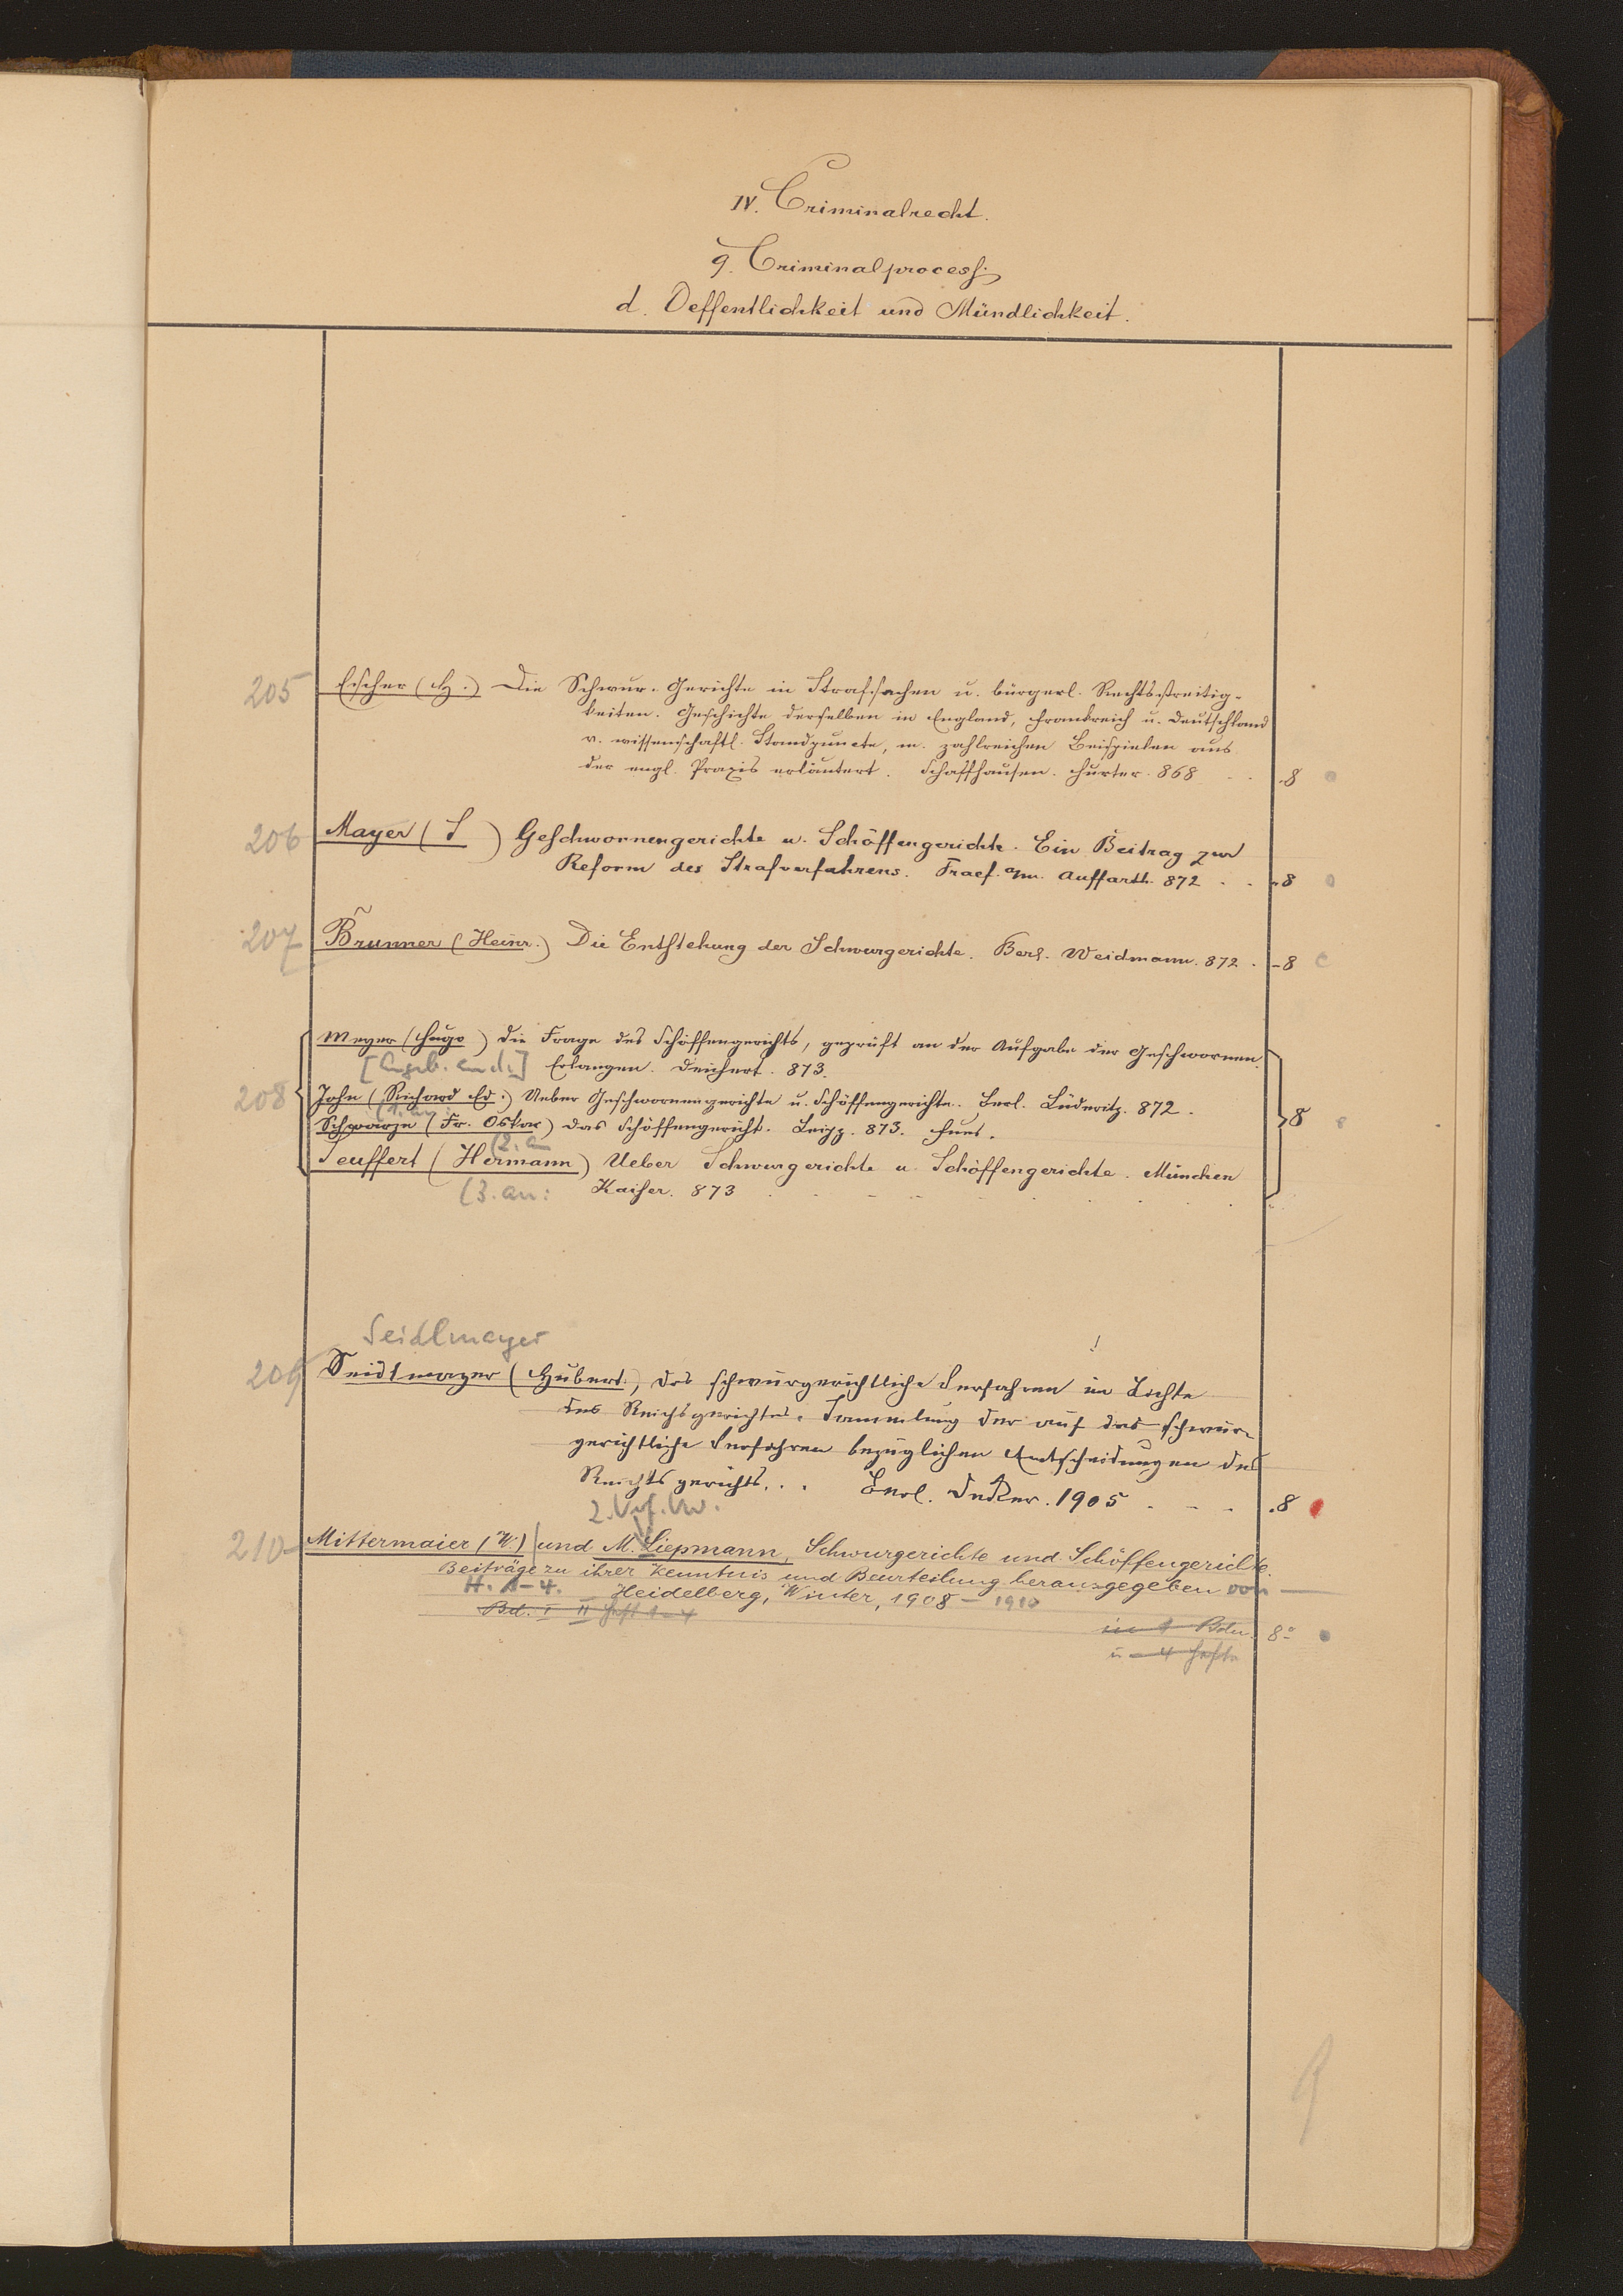 IV. Criminalrecht.
9. Criminalprocess.
d. Oeffentlichkeit und Mündlichkeit.
205 Escher (H.) Die Schwur-Gerichte in Strafsachen u. bürgerl. Rechtsstreitig-
keiten. Geschichte derselben in England, Frankreich u. Deutschland
v. wissenschaftl. Standpuncte, m. zahlreichen Beispielen aus
der engl. Praxis erläutert. Schaffhausen. Hurter. 868 . . 8
206 Mayer (S ) Geschwornengerichte u. Schöffengerichte. Ein Beitrag zur
Reform des Strafverfahrens. Frcf. a/m. Auffarth. 872 . . 8
207 Brunner (Heinr.) Die Entstehung der Schwurgerichte. Berl. Weidmann. 872 . - 8
Meyer (Hugo) Die Frage des Schöffengerichts, geprüft an der Aufgabe der Geschwornen.
[Angeb. and.] Erlangen. Deichert. 873.
208 John (Richard Ed.) Ueber Geschwornengerichte u. Schöffengerichte. Berl. Lüderitz. 872. 8
(1. an
Schwarze (Fr. Oskar) Das Schöffengericht. Leipz. 873. Hues.
(2. an
Seuffert (Hermann) Ueber Schwurgerichte u. Schöffengerichte. München
(3. an: Kaiser. 873
Seidlmayer
209 Seidlmayer (Hubert), Das schwurgerichtliche Verfahren im Lichte
des Reichsgerichtes. Sammlung der auf das schwur-
gerichtliche Verfahren bezüglichen Entscheidungen des
Reichsgerichts... Berl. Decker. 1905 . - - . 8
2. Verf. Vw.
210 Mittermaier (W.) und M. Liepmann, Schwurgerichte und Schöffengerichte.
Beiträge zu ihrer Kenntnis und Beurteilung herausgegeben von
H. 1-4. Heidelberg, Winter, 1908 - 1910
Bd. I II Heft 1-4
in Bdn. 8°
u 4 Hefte